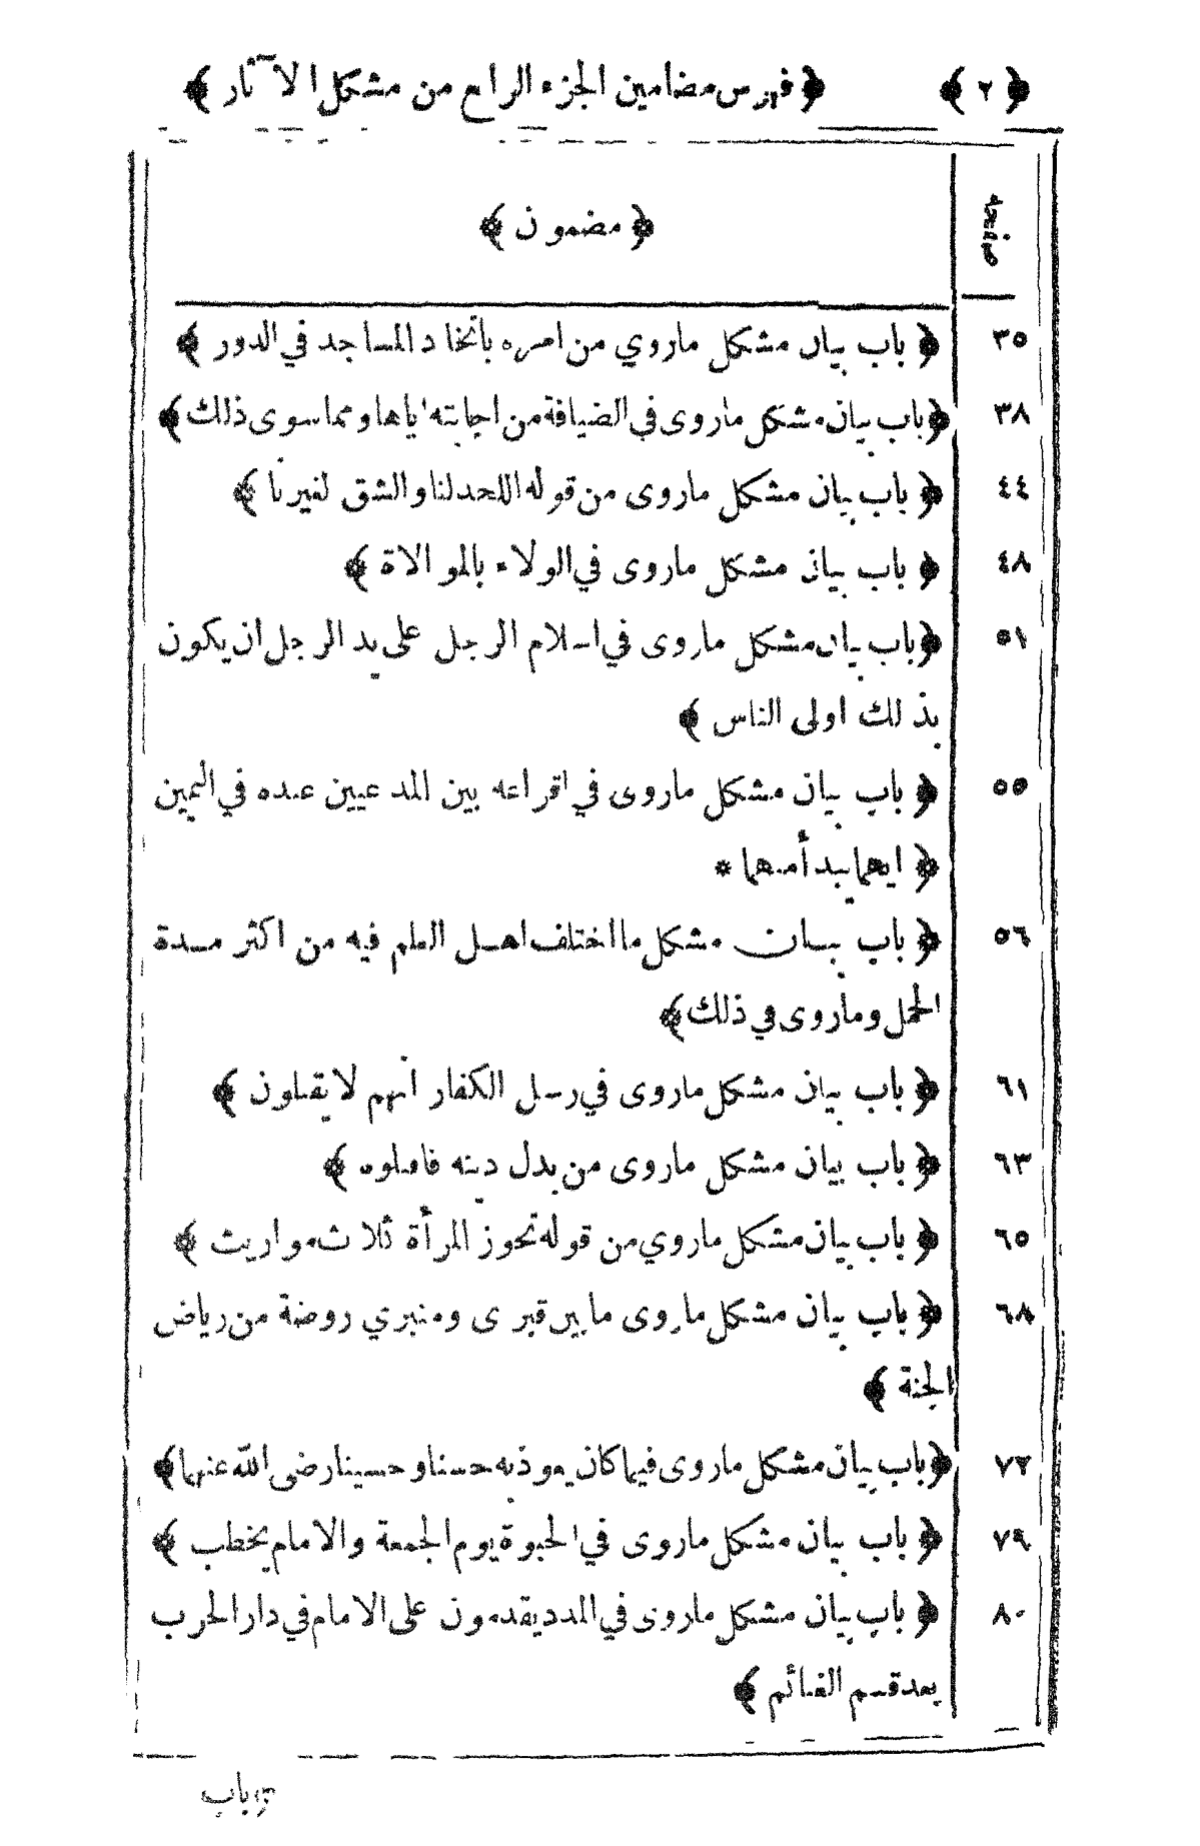 ﴿ ٢ ﴾ ﴿ فهرس مضامين الجزء الرابع من مشكل الآثار ﴾
صفحه ﴿ مضمون ﴾
٣٥ ﴿ باب بيان مشكل ماروي من امره باتخاد المساجد في الدور ﴾
٣٨ ﴿ باب بيان مشكل ماروى في الضيافة من اجابته اياها ومما سوى ذلك ﴾
٤٤ ﴿ باب بيان مشكل ماروى من قوله اللحد لنا والشق لغيرنا ﴾
٤٨ ﴿ باب بيان مشكل ماروى في الولاء بالموالاة ﴾
٥١ ﴿ باب بيان مشكل ماروى في اسلام الرجل على يد الرجل ان يكون
بذلك اولى الناس ﴾
٥٥ ﴿ باب بيان مشكل ماروى في اقراعه بين المدعيين عنده في اليمين
﴿ ايهما يبدأ منهما *
٥٦ ﴿ باب بيان مشكل ما اختلف اهل العلم فيه من اكثر مدة
الحمل وماروى في ذلك ﴾
٦١ ﴿ باب بيان مشكل ماروى في رسل الكفار انهم لا يقتلون ﴾
٦٣ ﴿ باب بيان مشكل ماروى من بدل دينه فاقتلوه ﴾
٦٥ ﴿ باب بيان مشكل ماروي من قوله تحوز المرأة ثلاث مواريث ﴾
٦٨ ﴿ باب بيان مشكل ماروى ما بين قبرى ومنبري روضة من رياض
الجنة ﴾
٧٢ ﴿ باب بيان مشكل ماروى فيما كان يعوذ به حسنا وحسينا رضى الله عنهما ﴾
٧٩ ﴿ باب بيان مشكل ماروى في الحبوة يوم الجمعة والامام يخطب ﴾
٨٠ ﴿ باب بيان مشكل ماروى في المدد يقدمون على الامام في دار الحرب
بعد قسم الغنائم ﴾
باب